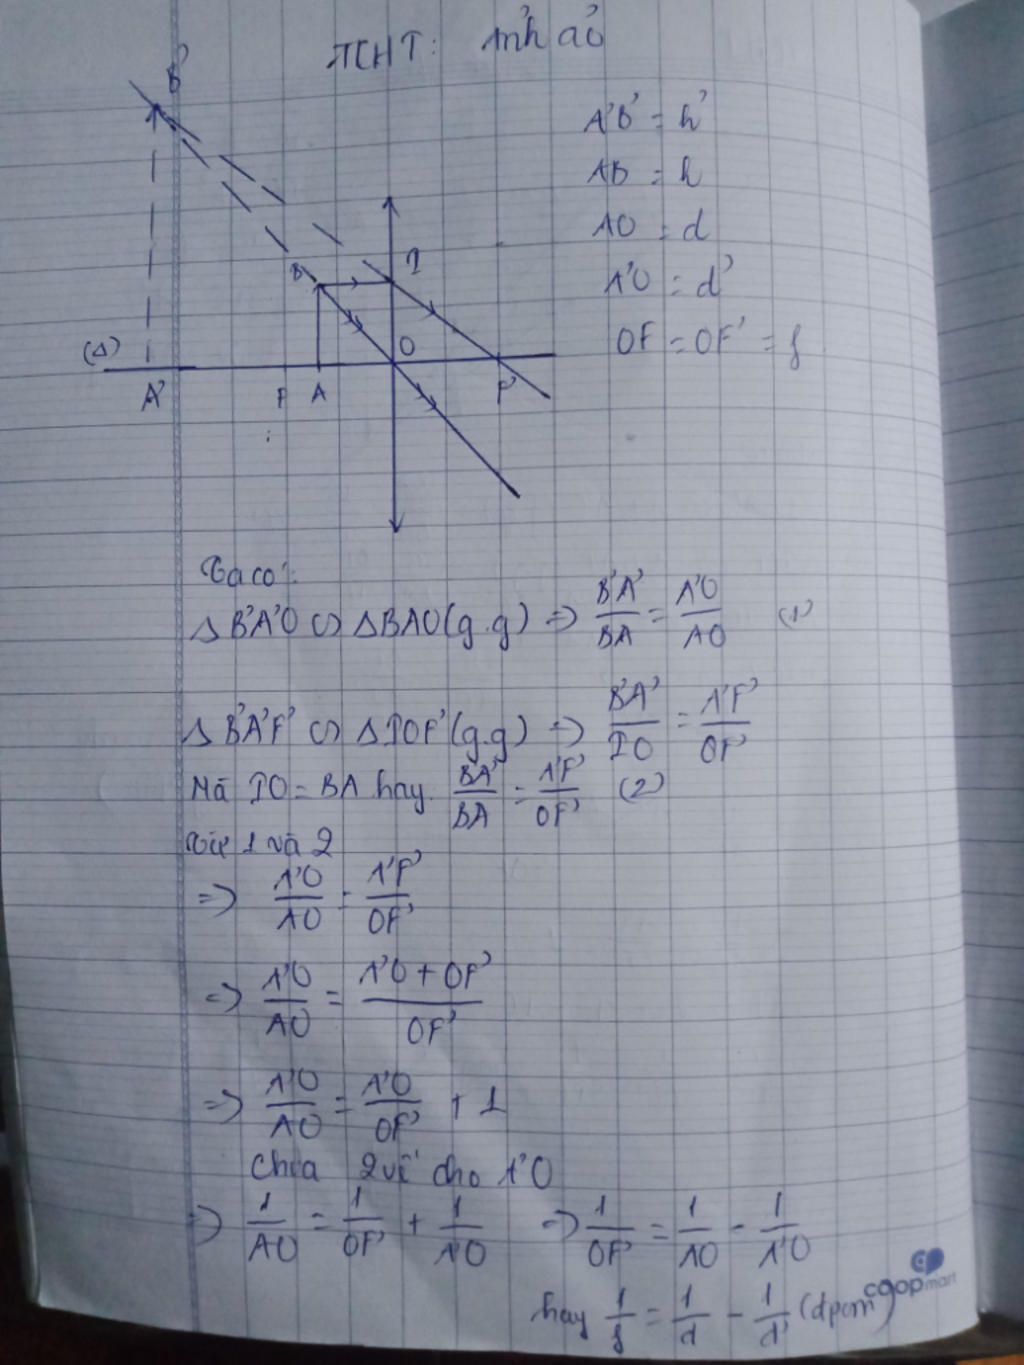 TKHT: Ảnh ảo
A'B' = h'
AB = h
AO = d
A'O = d'
OF = OF' = f
B'
B
I
(Δ)
O
A'
F
A
F'
Ta có:
Δ B'A'O ∽ ΔBAO (g.g) => B'A'/BA = A'O/AO (1)
Δ B'A'F' ∽ ΔIOF' (g.g) => B'A'/IO = A'F'/OF'
Mà IO = BA hay B'A'/BA = A'F'/OF' (2)
Từ 1 và 2
=> A'O/AO = A'F'/OF'
=> A'O/AO = (A'O + OF')/OF'
=> A'O/AO = A'O/OF' + 1
Chia 2 vế cho A'O
=> 1/AO = 1/OF' + 1/A'O => 1/OF' = 1/AO - 1/A'O
hay 1/f = 1/d - 1/d' (đpcm)
coopmart